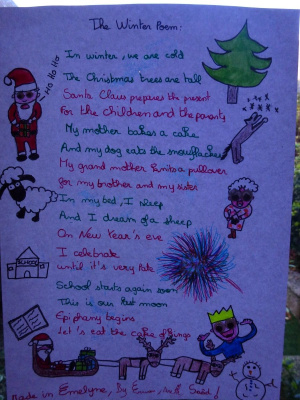 The Winter Poem:
Ho Ho Ho
In winter, we are cold
The Christmas trees are tall
Santa Claus prepares the present
For the children and the parents
My mother bakes a cake
And my dog eats the snowflakes
My grand mother knits a pullover
for my brother and my sister
In my bed, I sleep
And I dream of a sheep
On New Year's eve
I celebrate
until it's very late
School starts again soon
This is our last moon
Epiphany begins
Let's eat the cake of kings
Made in Emelyne, By